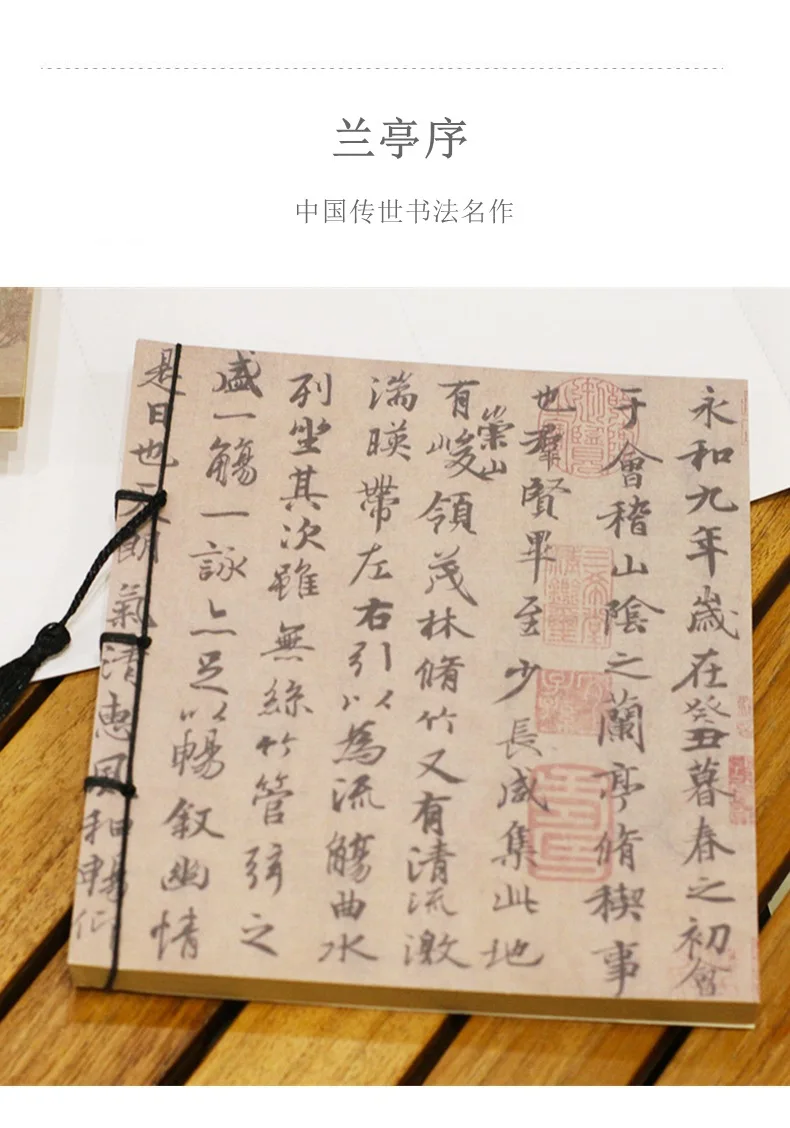 兰亭序
中国传世书法名作
永和九年歲在癸丑暮春之初會
于會稽山陰之蘭亭脩稧事
也羣賢畢至少長咸集此地
有崇山峻領茂林脩竹又有清流激
湍暎帶左右引以為流觴曲水
列坐其次雖無絲竹管弦之
盛一觴一詠亦足以暢叙幽情
是日也天朗氣清惠風和暢仰